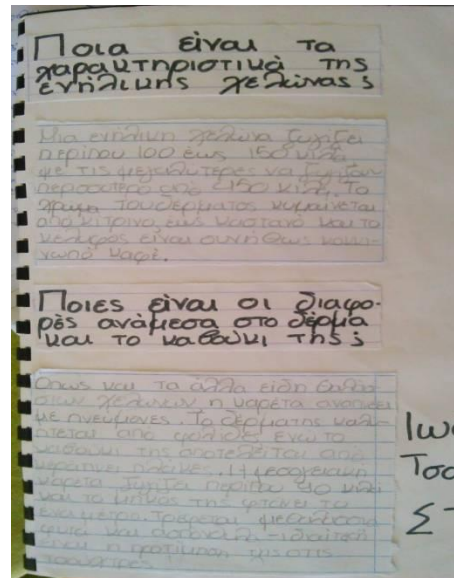 Ποια είναι τα
χαρακτηριστικά της
ενήλικης χελώνας;
Μια ενήλικη χελώνα ζυγίζει
περίπου 100 έως 150 κιλά
με τις μεγαλύτερες να ζυγίζουν
περισσότερο από 150 κιλά. Το
χρώμα του δέρματος κυμαίνεται
από κίτρινο έως καστανό και το
κέλυφος είναι συνήθως κοκκι-
νωπό καφέ.
Ποιες είναι οι διαφο-
ρές ανάμεσα στο δέρμα
και το καβούκι της;
Όπως και τα άλλα είδη θαλάσ-
σιων χελωνών η καρέτα αναπνέει
με πνεύμονες. Το δέρμα της καλύ-
πτεται από φολίδες ενώ το
καβούκι της αποτελείται από
κεράτινες πλάκες. Η μεσογειακή
καρέτα ζυγίζει περίπου 90 κιλά
και το μήκος της φτάνει το
ένα μέτρο. Τρέφεται με
φυτά και ασπόνδυλα
είναι η προτίμηση της στις
τσούχτρες.
Ιω
Τσο
Σ